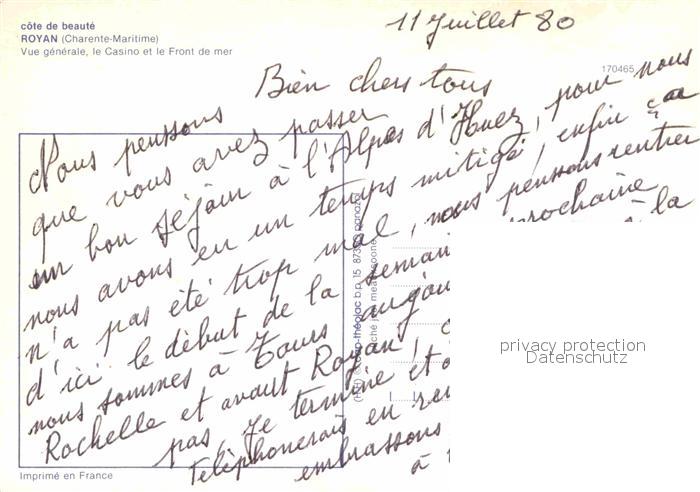 côte de beauté
ROYAN (Charente-Maritime)
Vue générale, le Casino et le Front de mer
11 Juillet 80
170465
Bien chers tous
Nous penssons
que vous avez passer
un bon séjour à l'Alpes d'Huez, pour nous
nous avons eu un temps mitigé, enfin ça
n'a pas été trop mal, nous penssons rentrer
d'ici le début de la semai prochaine
nous sommes à Tours aujou à la
Rochelle et avant Royan,
pas, Je termine et
téléphonerais en re
embrassons
à
Imprimé en France
privacy protection
Datenschutz